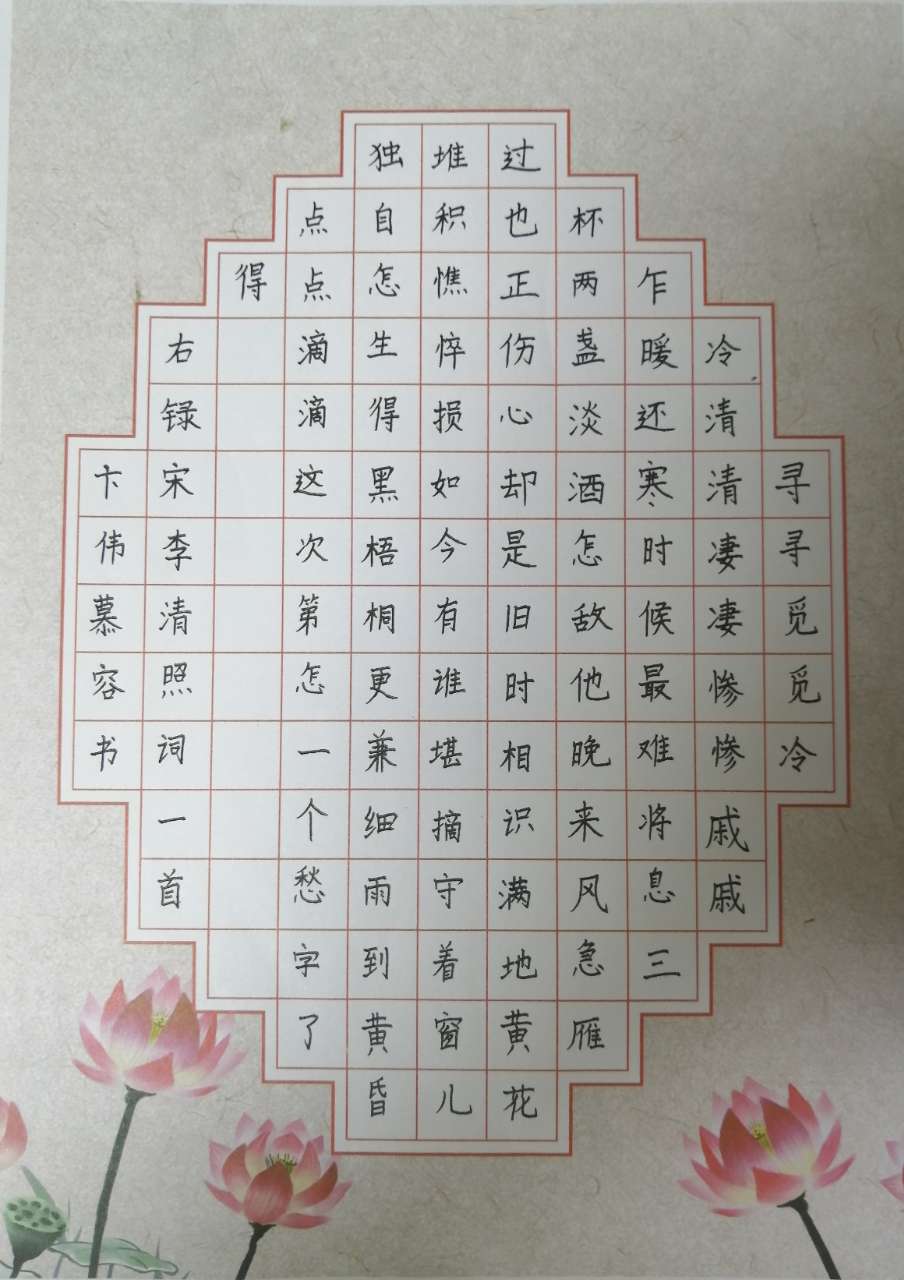 寻寻觅觅冷
冷清清凄凄惨惨戚戚
乍暖还寒时候最难将息三
杯两盏淡酒怎敌他晚来风急雁
过也正伤心却是旧时相识满地黄花
堆积憔悴损如今有谁堪摘守着窗儿
独自怎生得黑梧桐更兼细雨到黄昏
点点滴滴这次第怎一个愁字了
得
右错宋李清照词一首
卞伟慕容书